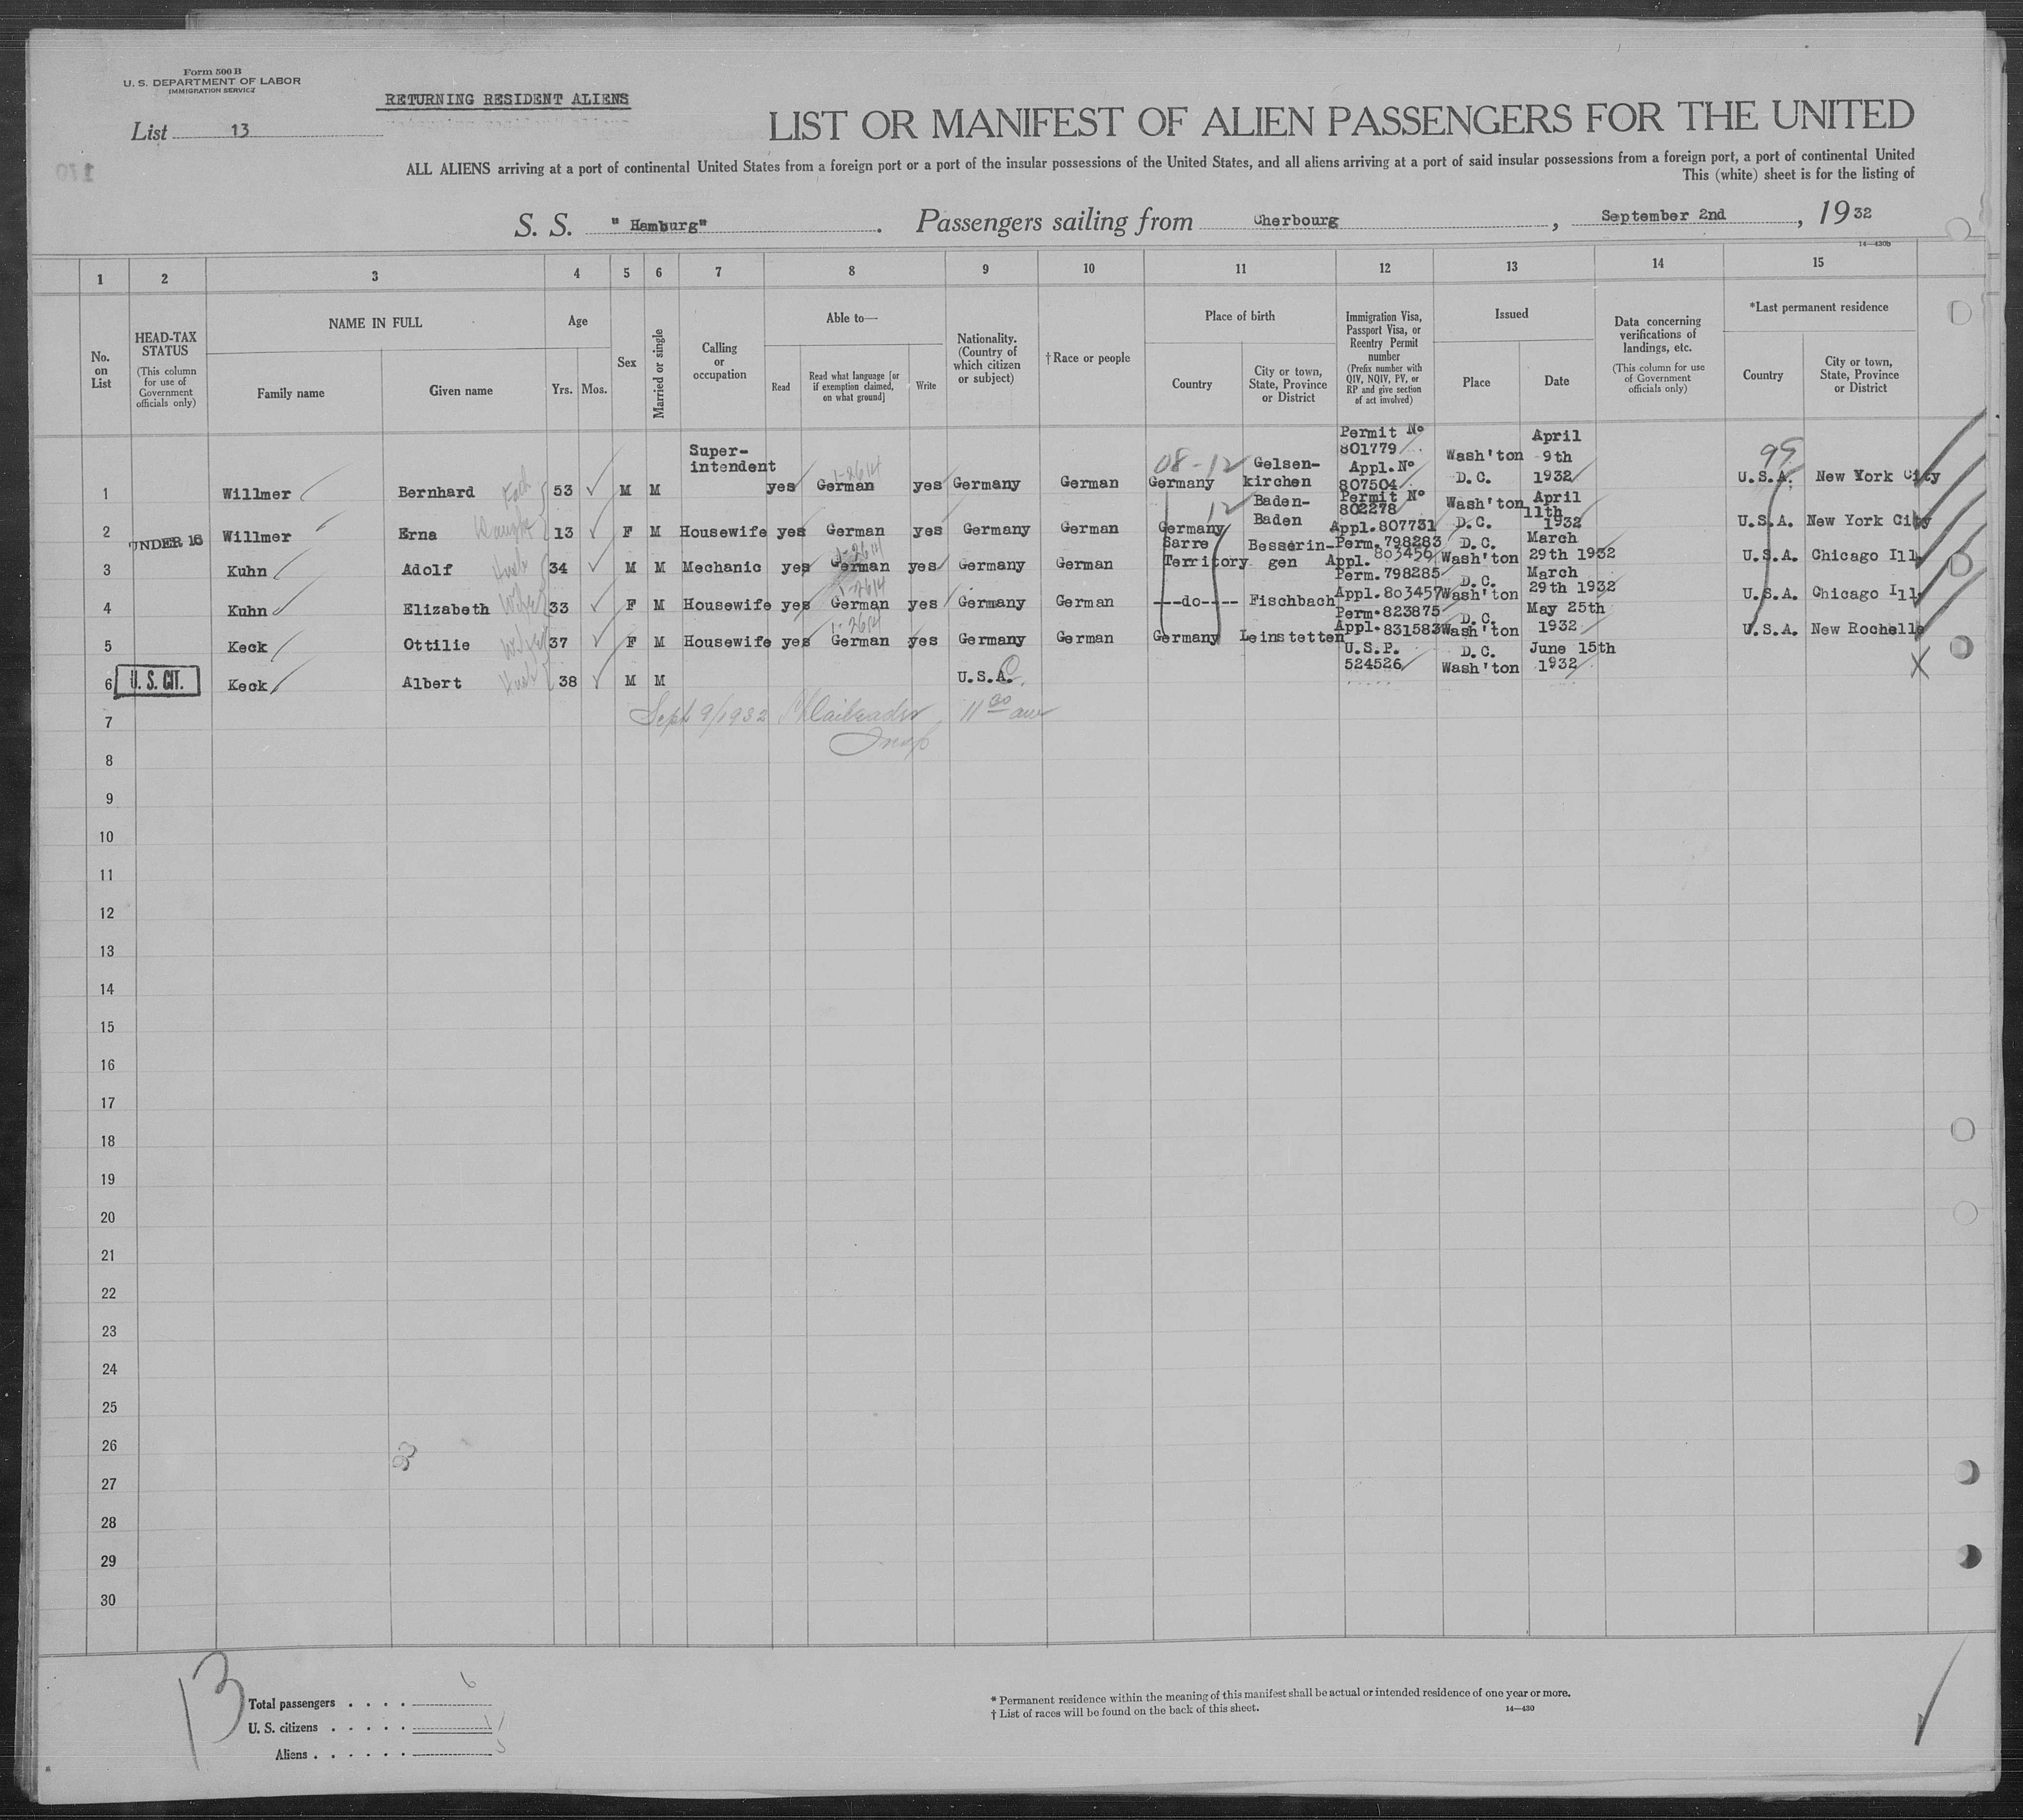 Form 500 B
U. S. DEPARTMENT OF LABOR
IMMIGRATION SERVICE
RETURNING RESIDENT ALIENS
List 13
LIST OR MANIFEST OF ALIEN PASSENGERS FOR THE UNITED
ALL ALIENS arriving at a port of continental United States from a foreign port or a port of the insular possessions of the United States, and all aliens arriving at a port of said insular possessions from a foreign port, a port of continental United
This (white) sheet is for the listing of
S. S. "Hamburg". Passengers sailing from Cherbourg, September 2nd, 1932
14—430b
1 2 3 4 5 6 7 8 9 10 11 12 13 14 15
No. on List
HEAD-TAX STATUS (This column for use of Government officials only)
NAME IN FULL
Family name
Given name
Age
Yrs. Mos.
Sex
Married or single
Calling or occupation
Able to—
Read
Read what language [or if exemption claimed, on what ground]
Write
Nationality. (Country of which citizen or subject)
†Race or people
Place of birth
Country
City or town, State, Province or District
Immigration Visa, Passport Visa, or Reentry Permit number (Prefix number with QIV, NQIV, PV, or RP and give section of act involved)
Issued
Place
Date
Data concerning verifications of landings, etc. (This column for use of Government officials only)
*Last permanent residence
Country
City or town, State, Province or District
08-12 99
1 Willmer Bernhard 53 M M Super-intendent yes German yes Germany German Germany Gelsen-kirchen Permit No 801779 Appl.No 807504 Wash'ton D.C. April 9th 1932 U.S.A. New York City
12
2 UNDER 16 Willmer Erna 13 F M Housewife yes German yes Germany German Germany Baden-Baden Permit No 802278 Appl.807731 Wash'ton D.C. April 11th 1932 U.S.A. New York City
3 Kuhn Adolf 34 M M Mechanic yes German yes Germany German Sarre Territory Besserin-gen Perm.798283 Appl. 803456 D.C. Wash'ton March 29th 1932 U.S.A. Chicago Ill
4 Kuhn Elizabeth Wife 33 F M Housewife yes German yes Germany German ---do---- Fischbach Perm.798285 Appl.803457 D.C. Wash'ton March 29th 1932 U.S.A. Chicago Ill
5 Keck Ottilie Wife 37 F M Housewife yes German yes Germany German Germany Leinstetten Perm.823875 Appl.831583 D.C. Wash'ton May 25th 1932 U.S.A. New Rochelle
6 U. S. CIT. Keck Albert 38 M M U.S.A. U.S.P. 524526 D.C. Wash'ton June 15th 1932
7 Sept 9/1932 11 00 am
Insp
8
9
10
11
12
13
14
15
16
17
18
19
20
21
22
23
24
25
26
27
28
29
30
13
Total passengers . . . . 6
U. S. citizens . . . . . 1
Aliens . . . . . . 5
* Permanent residence within the meaning of this manifest shall be actual or intended residence of one year or more.
† List of races will be found on the back of this sheet.
14—430